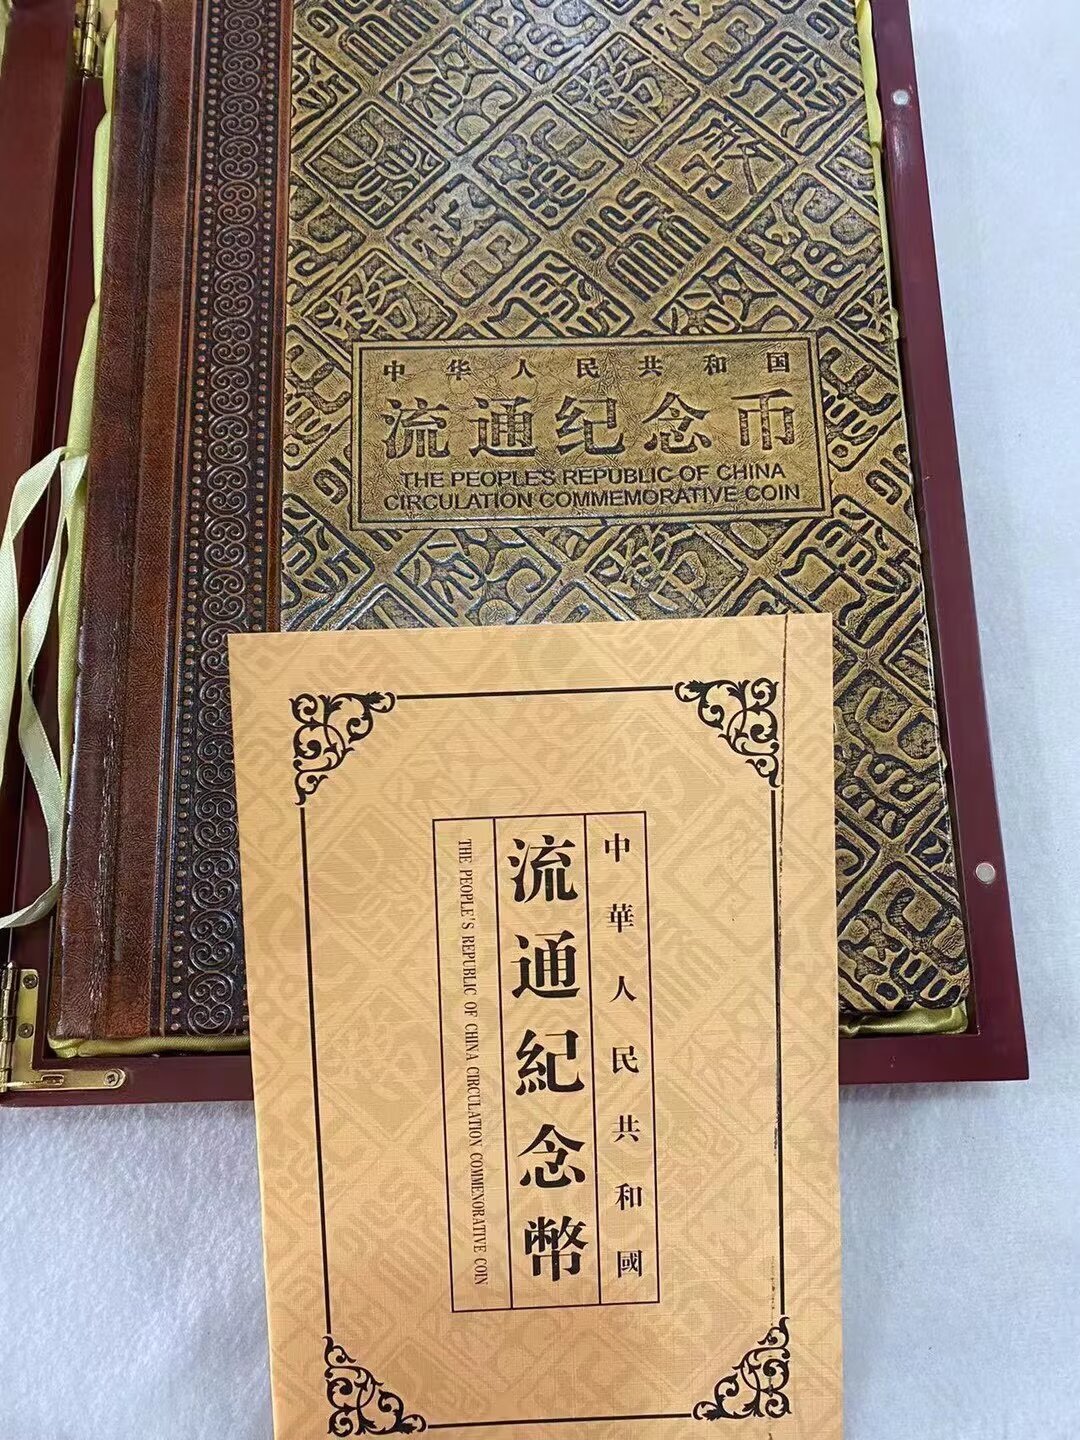 中华人民共和国
流通纪念币
THE PEOPLE'S REPUBLIC OF CHINA
CIRCULATION COMMEMORATIVE COIN
中華人民共和國
流通紀念幣
THE PEOPLE'S REPUBLIC OF CHINA CIRCULATION COMMENORATIVE COIN